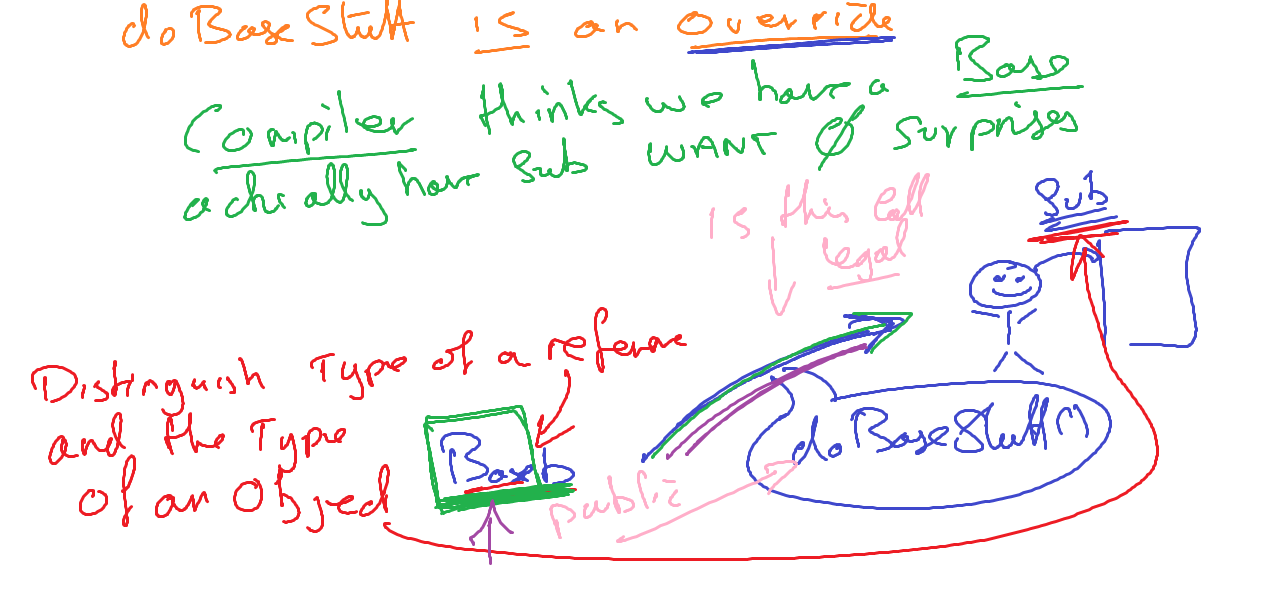 doBaseStuff is an override
Compiler thinks we have a Base
actually have Sub WANT Ø surprises
Is this call
legal
Sub
Distinguish Type of a reference
and the Type
of an Object
Base b
public
doBaseStuff()